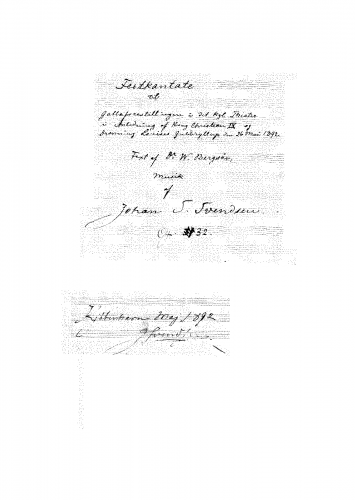 Festkantate
ved
Gallaforestillingen i det Kgl. Theater
i Anledning af Kong Christian IX og
Dronning Louises Guldbryllup den 26 Mai 1892.
Text af Dr W. Bergsøe.
Musik
af
Johan S. Svendsen.
Op. 32.
Kjöbenhavn Maj 1892
JSvendsen